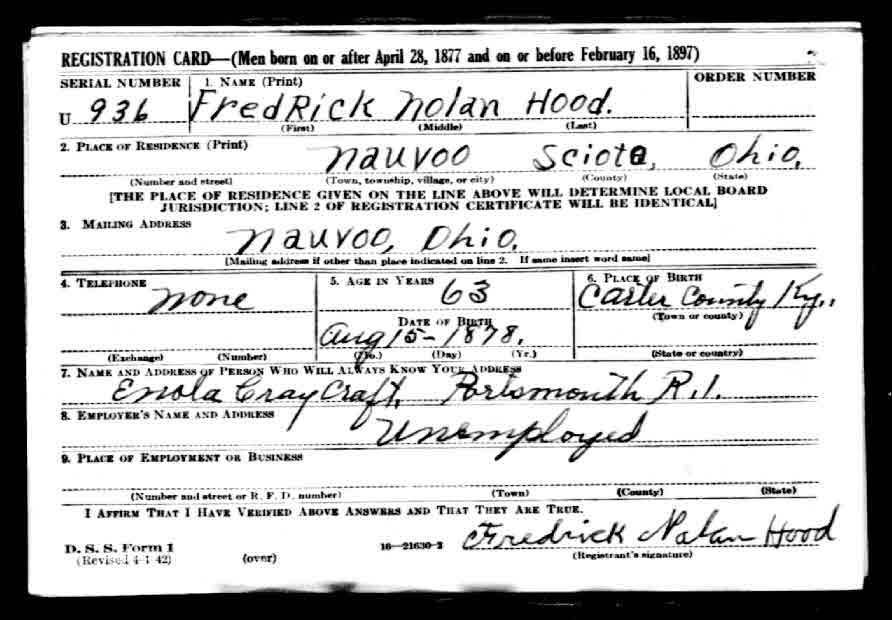 REGISTRATION CARD—(Men born on or after April 28, 1877 and on or before February 16, 1897)
SERIAL NUMBER 1. NAME (Print) ORDER NUMBER
U 936 FredRick Nolan Hood.
(First) (Middle) (Last)
2. PLACE OF RESIDENCE (Print)
Nauvoo Scioto, Ohio,
(Number and street) (Town, township, village, or city) (County) (State)
[THE PLACE OF RESIDENCE GIVEN ON THE LINE ABOVE WILL DETERMINE LOCAL BOARD
JURISDICTION; LINE 2 OF REGISTRATION CERTIFICATE WILL BE IDENTICAL]
3. MAILING ADDRESS
Nauvoo, Ohio.
[Mailing address if other than place indicated on line 2. If same insert word same]
4. TELEPHONE 5. AGE IN YEARS 6. PLACE OF BIRTH
None 63 Carter County Ky.,
DATE OF BIRTH (Town or county)
Aug 15-1878.
(Exchange) (Number) (Mo.) (Day) (Yr.) (State or country)
7. NAME AND ADDRESS OF PERSON WHO WILL ALWAYS KNOW YOUR ADDRESS
Enola Craycraft, Portsmouth R.1.
8. EMPLOYER'S NAME AND ADDRESS
Unemployed
9. PLACE OF EMPLOYMENT OR BUSINESS
(Number and street or R. F. D. number) (Town) (County) (State)
I AFFIRM THAT I HAVE VERIFIED ABOVE ANSWERS AND THAT THEY ARE TRUE.
D. S. S. Form 1 16—21630-2 Fredrick Nolan Hood
(Revised 4-1-42) (over) (Registrant's signature)